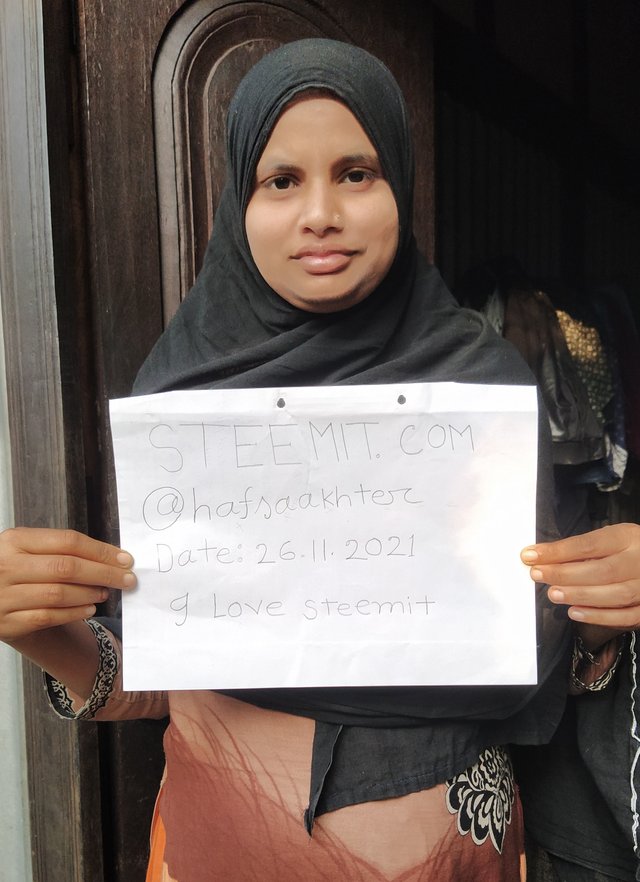 STEEMIT. COM
@hafsaakhter
Date: 26.11.2021
I Love steemit